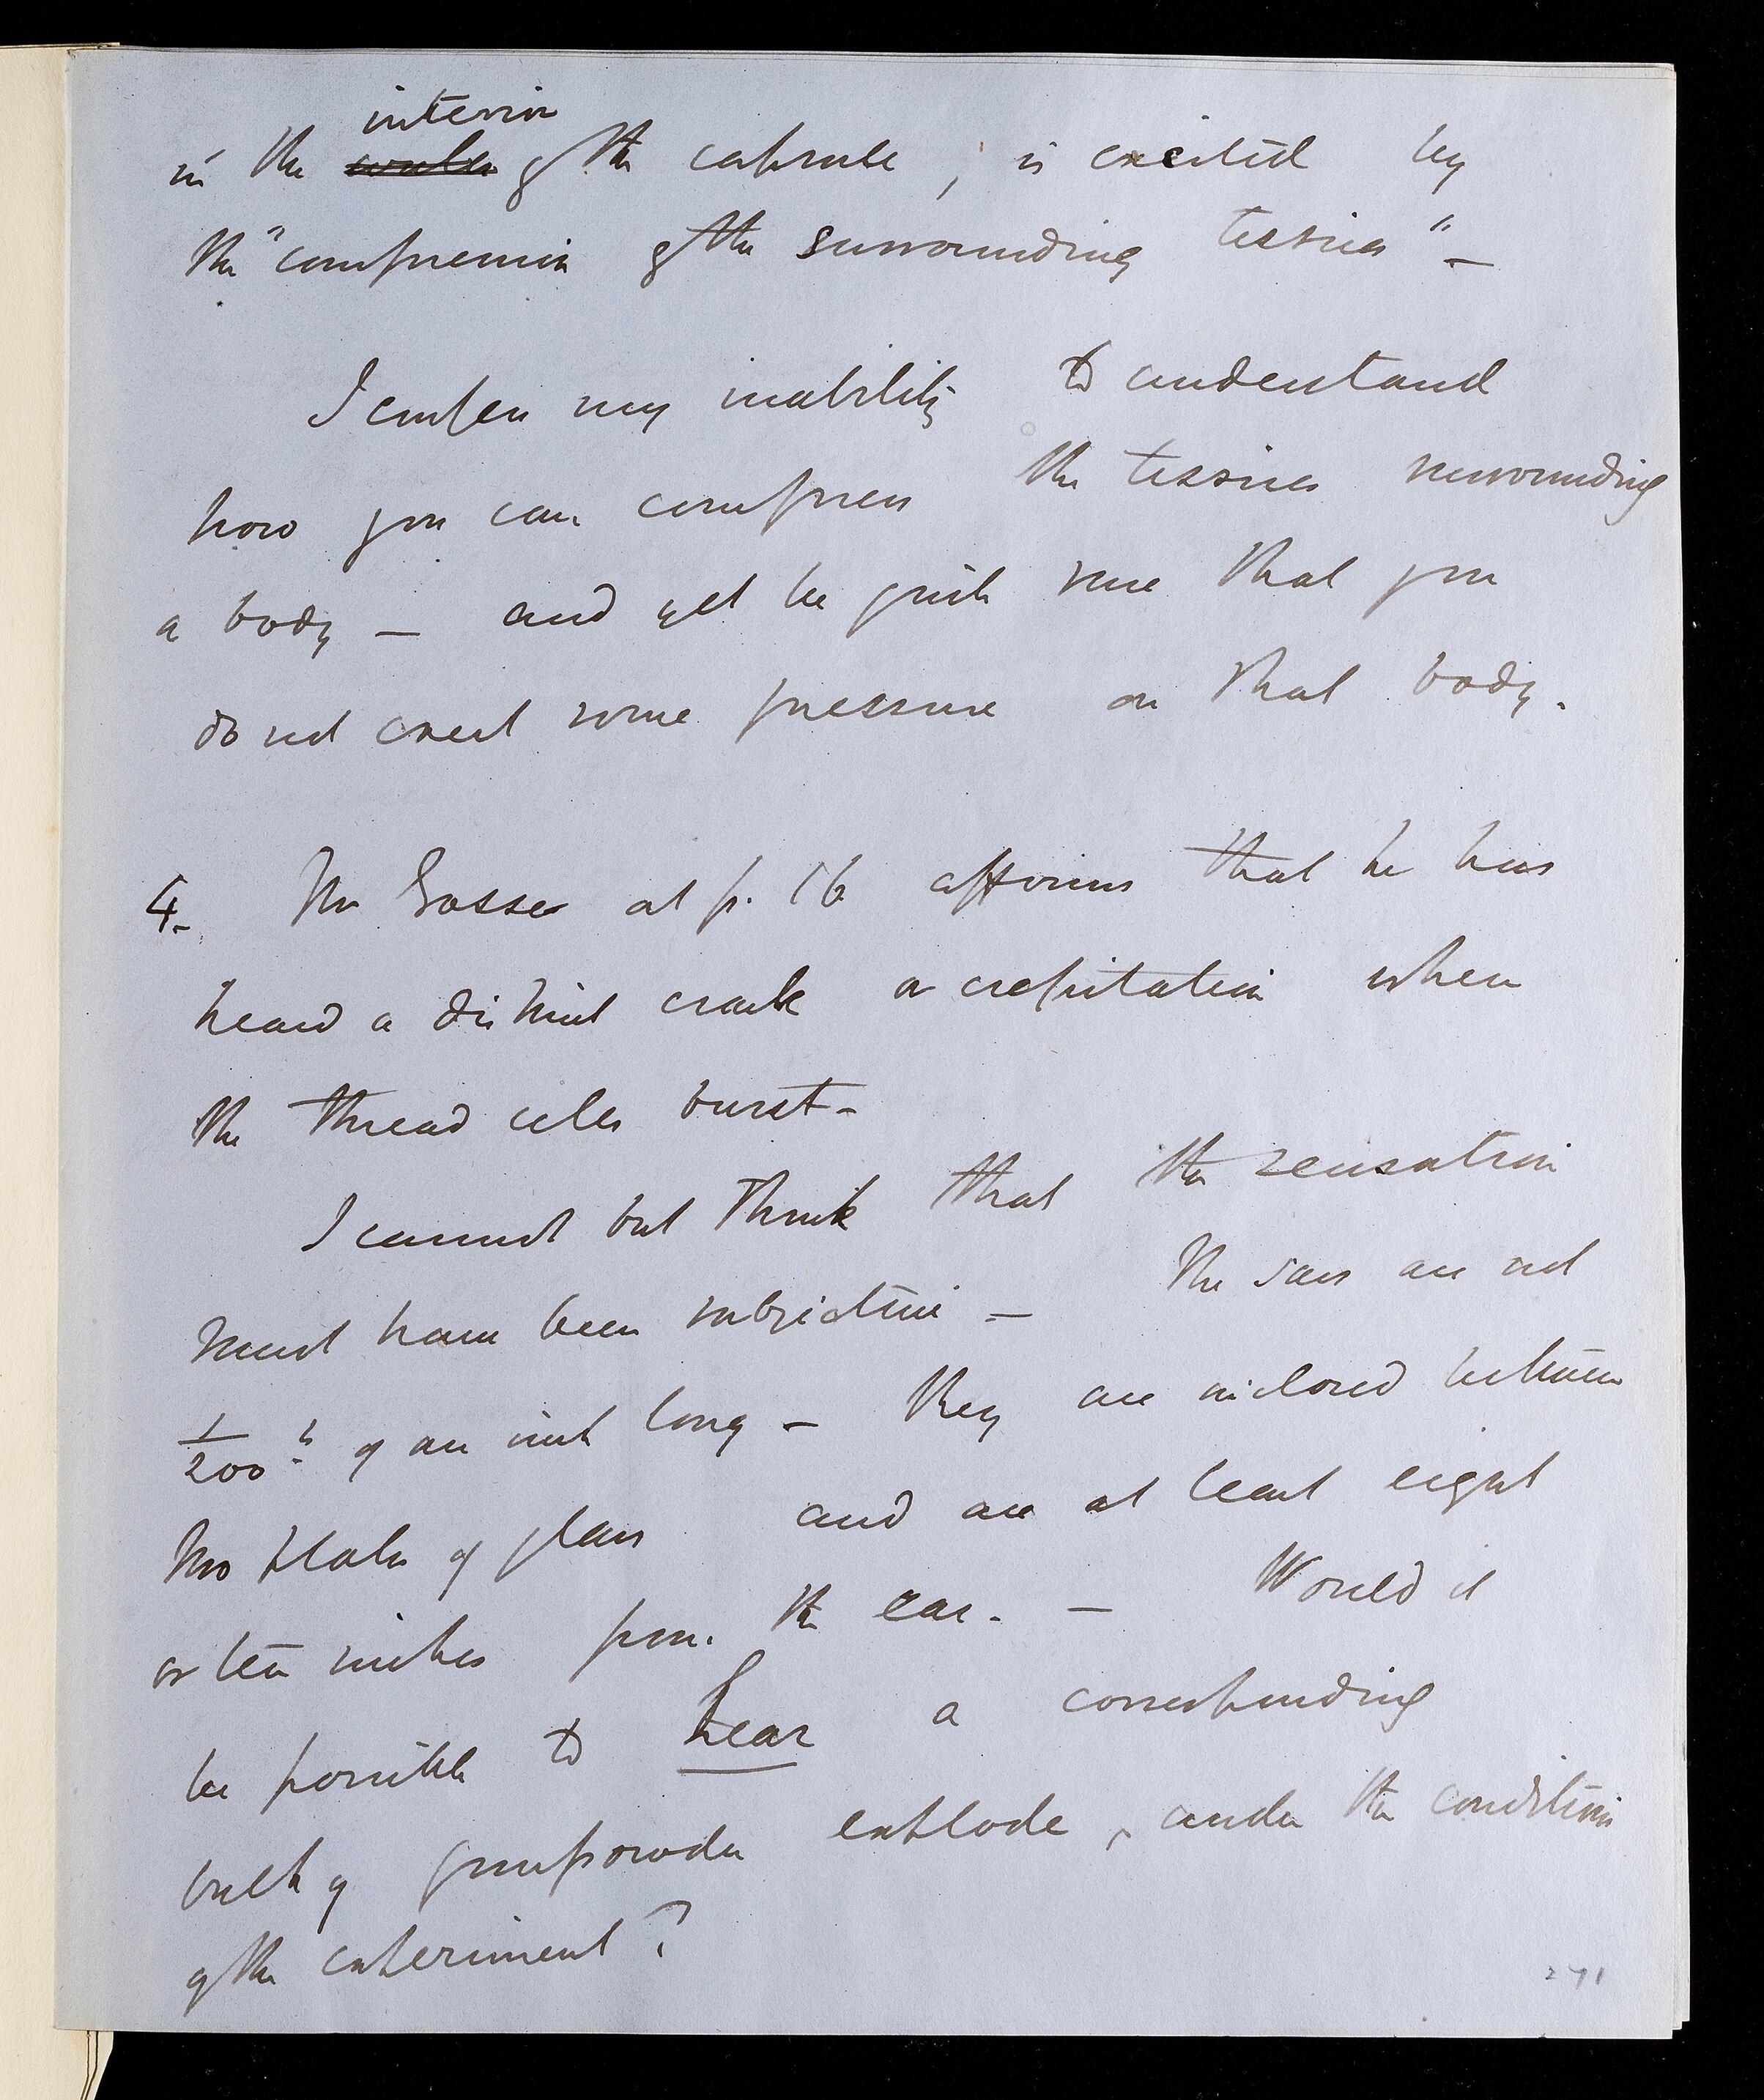 interior
in the walls of the capsule, is excited by
the "compression of the surrounding tissues" —
I confess my inability to understand
how you can compress the tissues surrounding
a body — and yet be quite sure that you
do not exert some pressure on that body.
4. Mr Gosse at p. 16 affirms that he has
heard a distinct crack or crepitation when
the thread cells burst —
I cannot but think that the sensation
must have been subjective — The sacs are not
1/200th of an inch long — they are inclosed between
two plates of glass and are at least eight
or ten inches from the ear. — Would it
be possible to hear a corresponding
bulk of gunpowder explode, under the conditions
of the experiment?
271